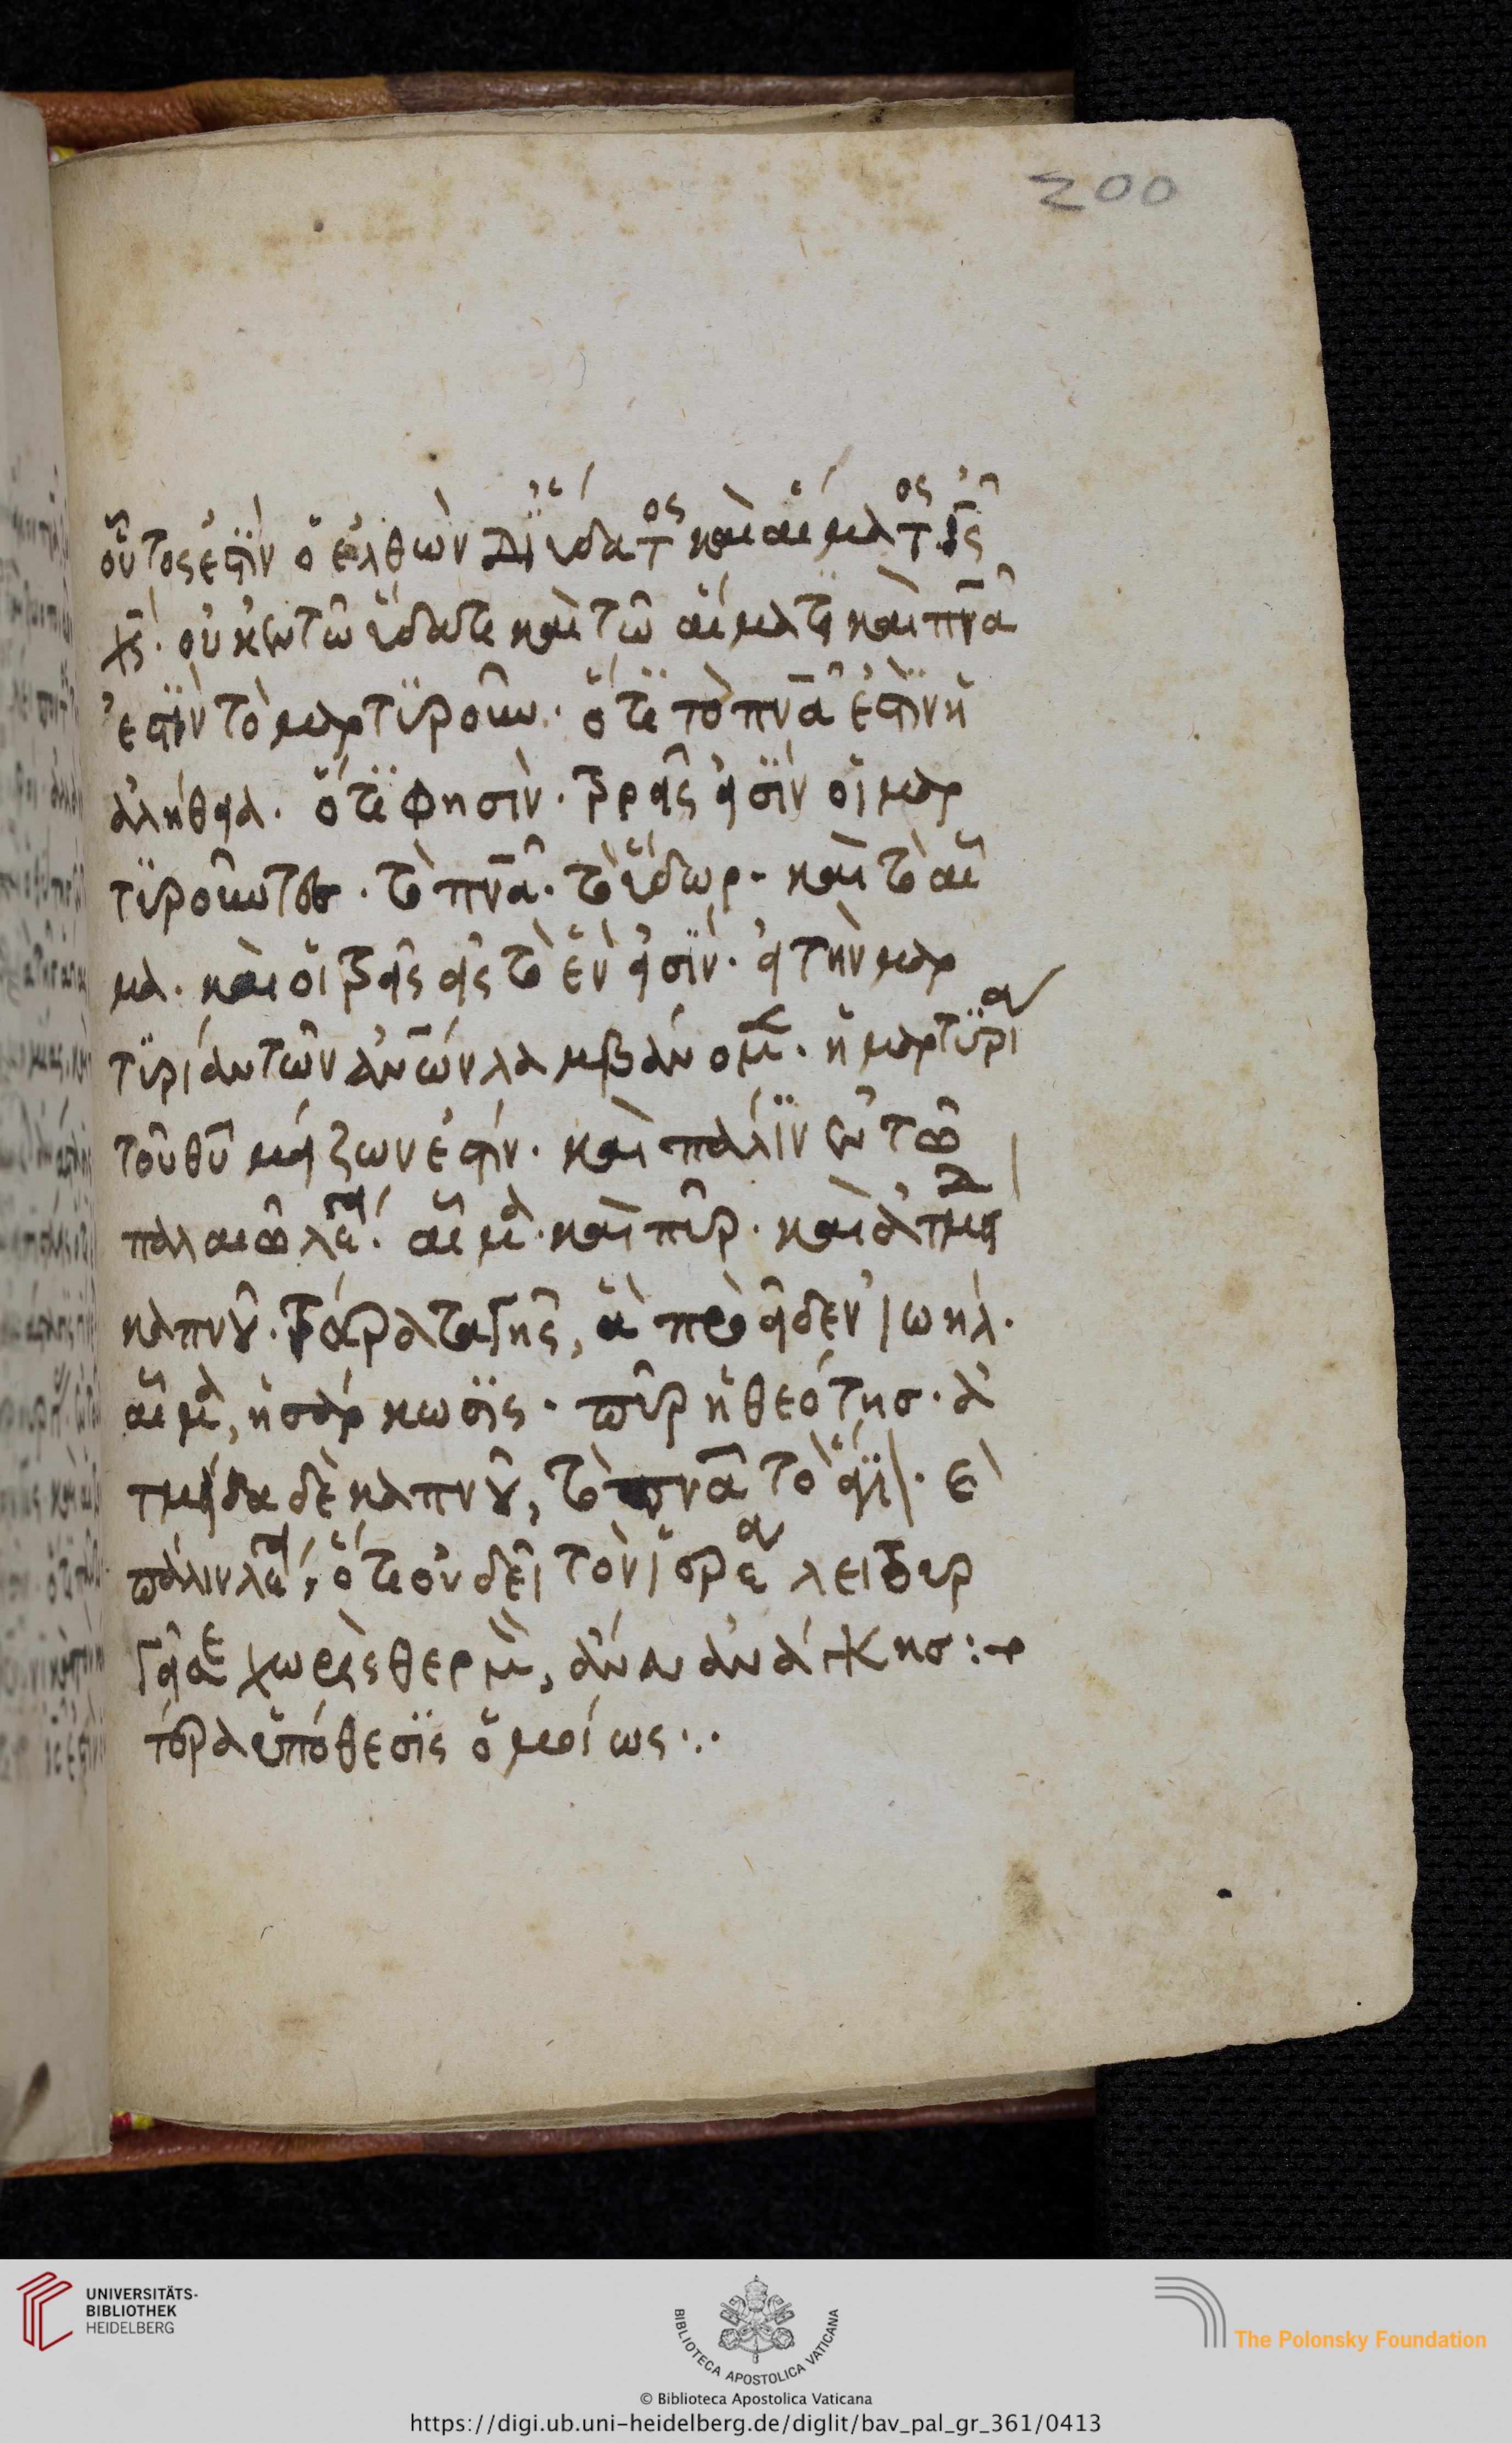 200
οὗτος ἐστϊν ὁ ἐλθὼν δϊ ὕδατος καὶ αἵματος ις
χς. οὐκ ἐν τῶ ὕδατι καὶ τῶ αἵματϊ καὶ πνα
ἐστϊν τὸ μαρτϋροῦν. ὅτϊ τὸ πνα ἐστϊν ἡ
ἀλήθεια. ὅτϊ φησὶν. τρεῖς εἰσϊν οἱ μαρ
τϋροῦντες. τὸ πνα. τὸ ὕδωρ. καὶ τὸ αἷ
μα. καὶ οἱ τρεῖς εἰς τὸ ἕν εἰσϊν. εἰ τὴν μαρ
τϋρίαν τῶν ἀνων λαμβάνομεν. ἡ μαρτϋρία
τοῦ θυ μείζων ἐστίν. καὶ πάλϊν ἐν τῶ
παλαιῶ λέγει. αἷμα. καὶ πῦρ. καὶ ἀτμίδα
καπνοῦ. τέρατα γῆς, ἃ προεῖδεν ἰωήλ.
αἷμα, ἡ σάρκωσϊς. πῦρ ἡ θεότησ. ἀ
τμίδα δὲ καπνοῦ, τὸ πνα τὸ ἅγϊον.
πάλιν λέγει, ὅτι οὐ δεῖ τὸν ἱερέα λειτουρ
γεῖσαι χωρὶς θερμοῦ, ἄνευ ἀνάγκησ:
τόρα ὑπόθεσϊς ὁμοίως:.
UNIVERSITÄTS-
BIBLIOTHEK
HEIDELBERG
BIBLIOTECA APOSTOLICA VATICANA
The Polonsky Foundation
© Biblioteca Apostolica Vaticana
https://digi.ub.uni-heidelberg.de/diglit/bav_pal_gr_361/0413